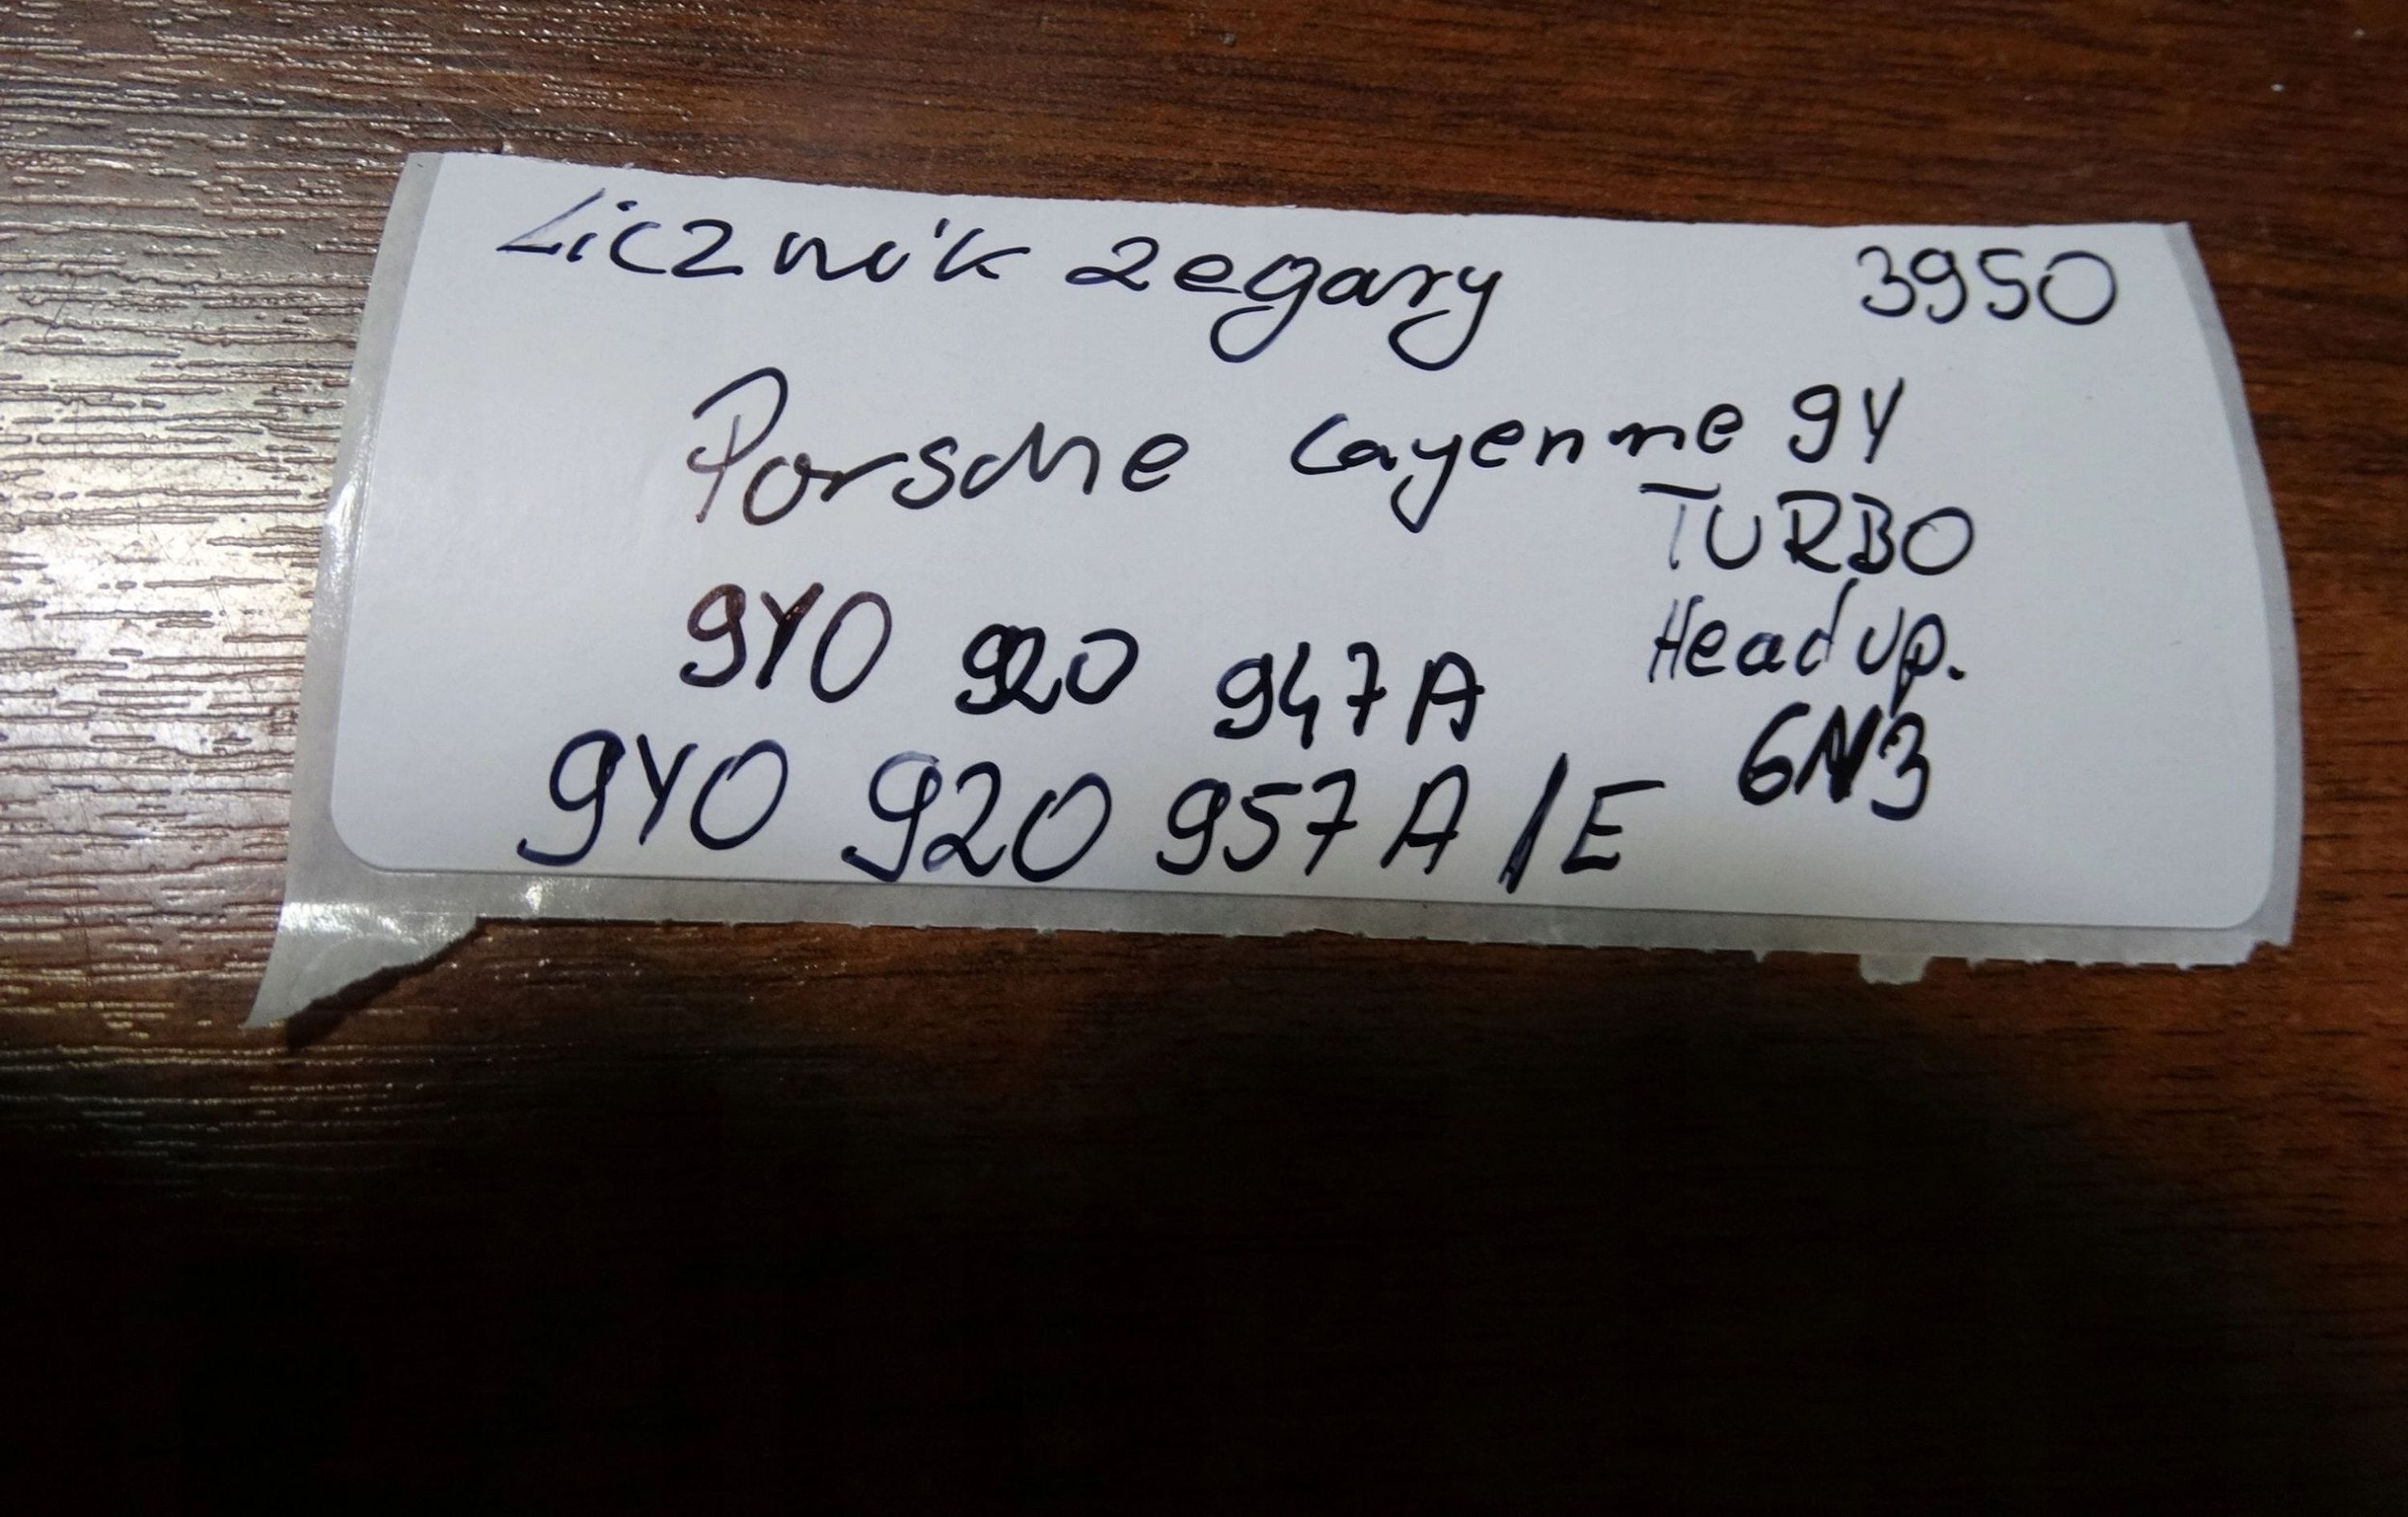 Licznik zegary 3950
Porsche Cayenne 9Y
TURBO
9Y0 920 947A Head up.
9Y0 920 957A/E 6N3